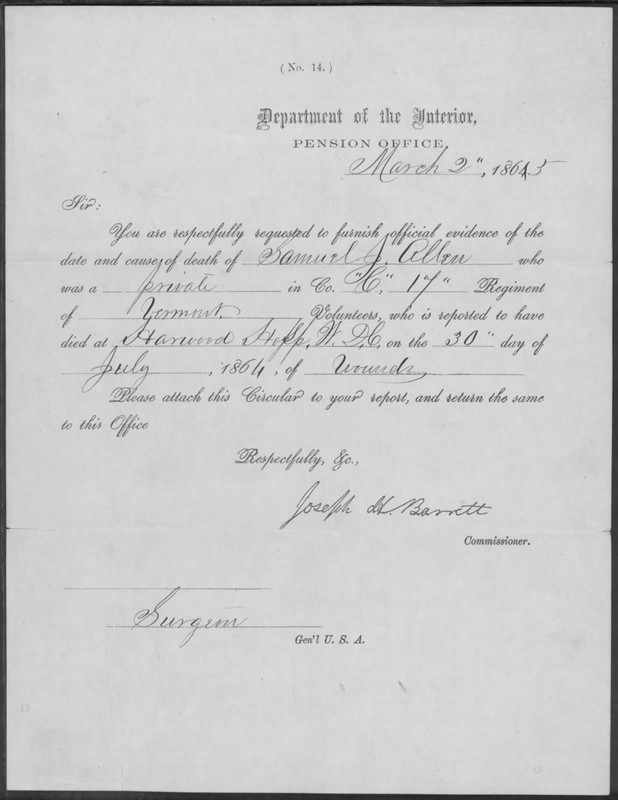 ( No. 14. )
Department of the Interior,
PENSION OFFICE,
March 2", 1865
Sir:
You are respectfully requested to furnish official evidence of the
date and cause of death of Samuel J. Allen who
was a private in Co. "C", 17" Regiment
of Vermont, Volunteers, who is reported to have
died at Harwood Hosp, W. D.C, on the 30" day of
July, 1864, of Wounds
Please attach this Circular to your report, and return the same
to this Office
Respectfully, &c.,
Joseph H. Barrett
Commissioner.
Surgeon
Gen'l U. S. A.